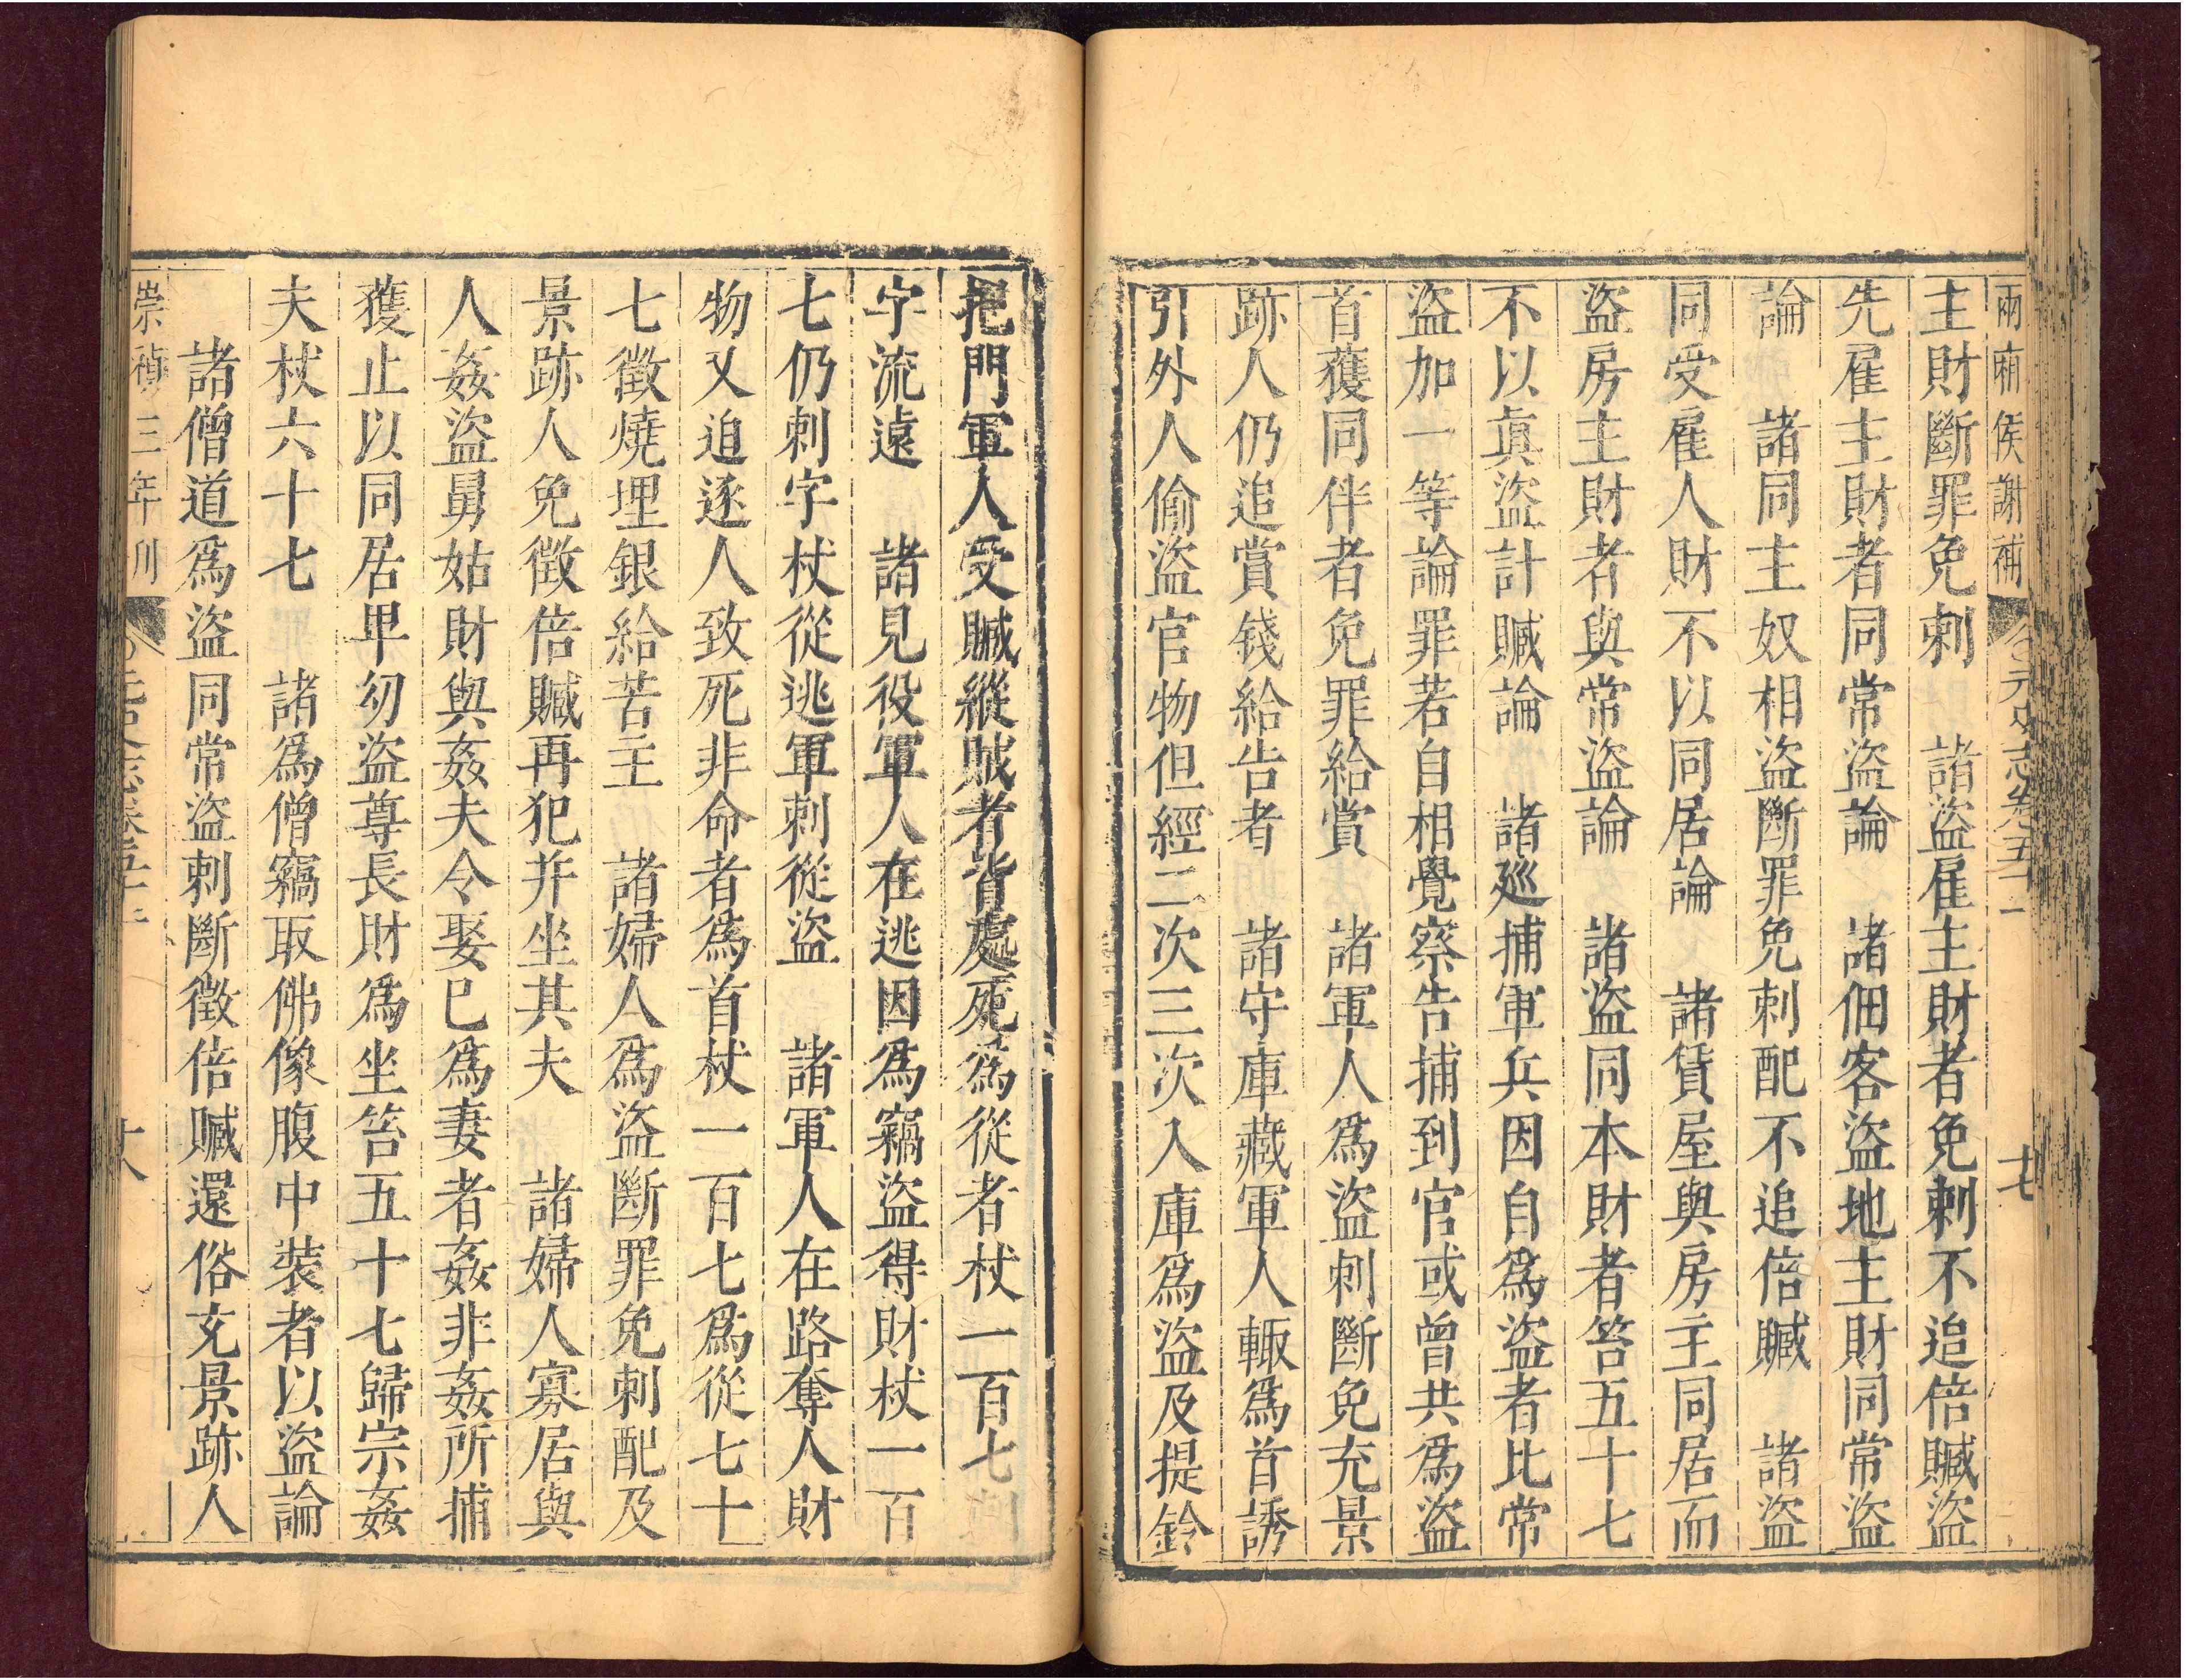 兩廂侯謝補 元史志卷五十一 十七
主財斷罪免刺　諸盜雇主財者免刺不追倍贓盜
先雇主財者同常盜論　諸佃客盜地主財同常盜
論　諸同主奴相盜斷罪免刺配不追倍贓　諸盜
同受雇人財不以同居論　諸賃屋與房主同居而
盜房主財者與常盜論　諸盜同本財者笞五十七
不以真盜計贓論　諸廵捕軍兵因自為盜者比常
盜加一等論罪若自相覺察告捕到官或曾共為盜
首獲同伴者免罪給賞　諸軍人為盜刺斷免充景
跡人仍追賞錢給告者　諸守庫藏軍人輙為首誘
引外人偷盜官物但經二次三次入庫為盜及提鈴
把門軍人受贓縱賊者皆處死為從者杖一百七
字流遠　諸見役軍人在逃因為竊盜得財杖一百
七仍刺字杖從逃軍刺從盜　諸軍人在路奪人財
物又迫逐人致死非命者為首杖一百七為從七十
七徵燒埋銀給苦主　諸婦人為盜斷罪免刺配及
景跡人免徵倍贓再犯并坐其夫　諸婦人寡居與
人姦盜舅姑財與姦夫令娶已為妻者姦非姦所捕
獲止以同居卑㓜盜尊長財為坐笞五十七歸宗姦
夫杖六十七　諸為僧竊取佛像腹中裝者以盜論
諸僧道為盜同常盜刺斷徵倍贓還俗充景跡人
崇禎三年刋 元史志卷五十一 十八